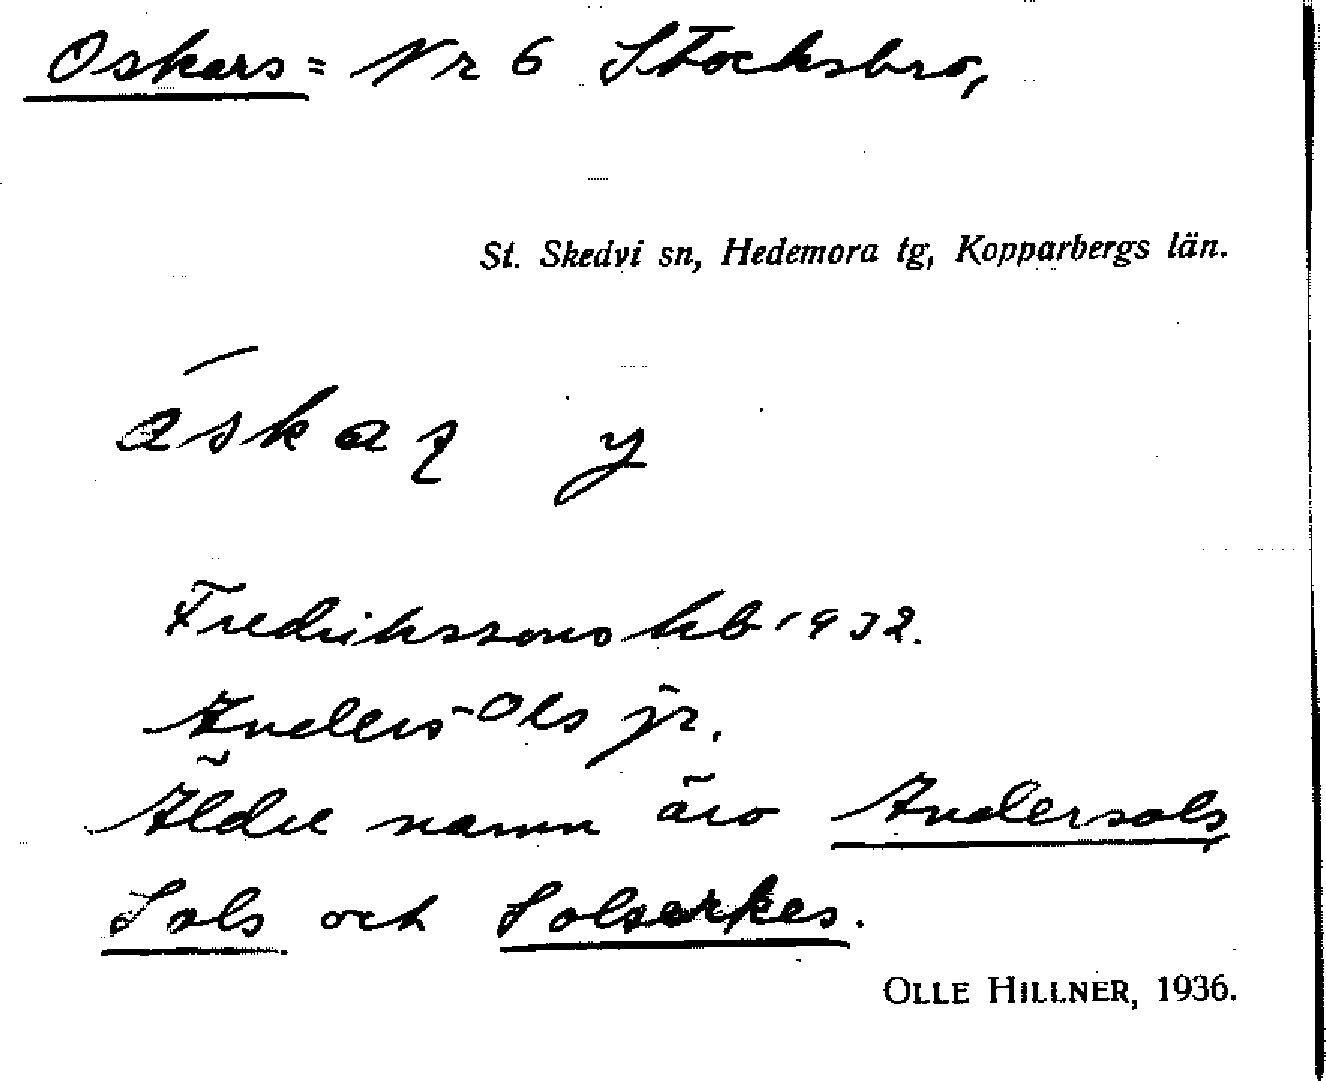 Oskars = Nr 6 Stocksbro,
St. Skedvi sn, Hedemora tg, Kopparbergs län.
áskaʒ y
Fredrikssons hb 1932.
Anders-Ols jr.
Äldre namn äro Andersols,
Sols och Solserkes.
OLLE HILLNER, 1936.